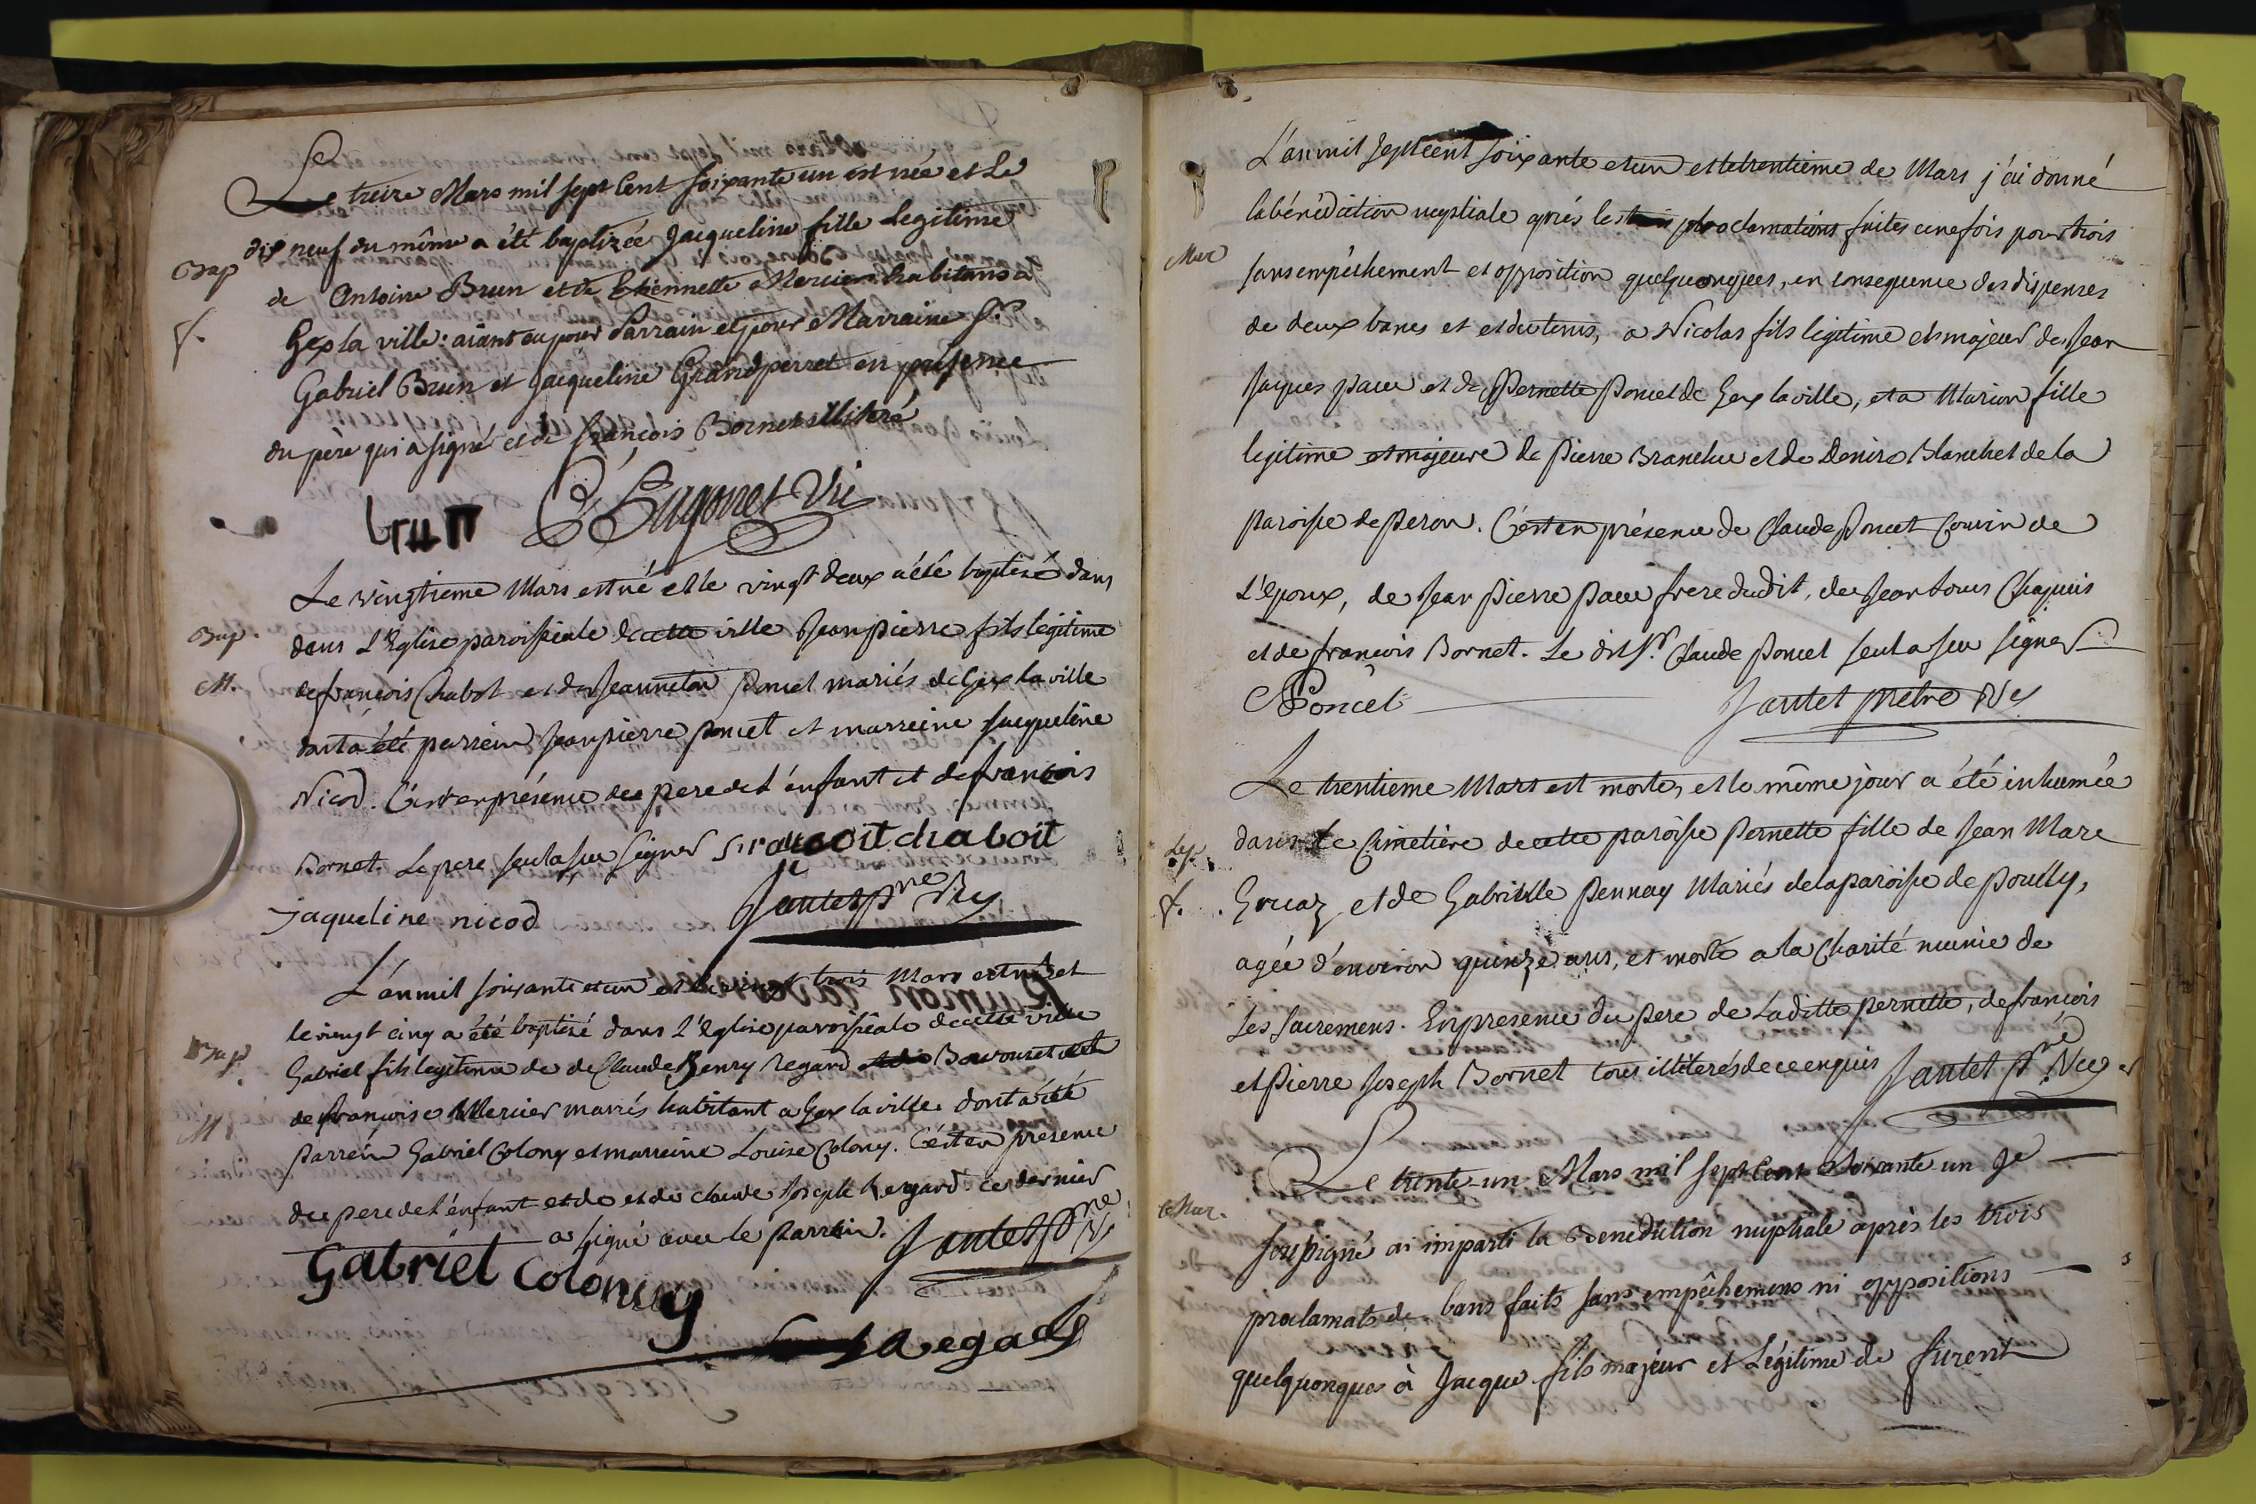 Le treize Mars mil sept Cent soixante un est née et le
dix neuf du même a été baptizée Jacqueline fille Legitime
Bap
de Antoine Brun et de Etiennette Mercier habitans a
f.
Gex la ville: aiant eu pour Parrain et pour Marraine Sr.
Gabriel Brun et Jacqueline Grandperret en présence
du père qui a signé et de françois Bornet illiteré
brun
Le vingtieme Mars est né et le vingt deux a été baptisé dans
Bap.
dans L'Eglise paroissiale de cette ville Jeanpierre fils légitime
M.
de françois Chabot et de Jeanneton Poncet mariés de Gex la ville
dont a été parrein Jeanpierre Poncet et marreine Jacqueline
Nicod. C'est en présence du pere de l'énfant et de françois
Bornet. Le pere seul a su signer francoit chaboit
jaqueline nicod Jantet ptre Vic
L'an mil soixante et un et le vingt trois Mars est né et
le vingt cinq a été baptisé dans L'Eglise paroissiale de cette ville
Bap.
Gabriel fils legitime de de Claude Henry Regard et de
M.
de françoise Mercier mariés habitant a Gex la ville. dont a été
parrein Gabriel Colony et marreine Louise Colony. C'est en présence
du pere de l'énfant et de et de claude Joseph Regard. ce dernier
a signé avec le parrain. Jantet ptre V
Gabriel Colony
Regad
L'an mil septcent soixante et un et le trentieme de Mars j'ai donné
la bénédiction nuptiale après les proclamations faites une fois pour trois
Mar
sans empêchement et opposition quelquonques, en consequence des dispenses
de deux bancs et et du tems, a Nicolas fils legitime et majeur de Jean
Jaques et de Pernette Poncet de Gex la ville, et a Marion fille
legitime et majeure de Pierre Branchu et de Denise Blanchet de la
paroisse de Peron. C'est en présence de Claude Poncet Cousin de
L'Epoux, de Jean Pierre frere dudit, de Jean Louis Chapuis
et de françois Bornet. Le dit Sr. Claude Poncet seul a su signer
C Poncet Jantet prêtre Vic
Le trentieme Mars est morte, et le même jour a été inhumée
dans le Cimetière de cette paroisse Pernette fille de Jean Marc
f.
Grucaz et de Gabrielle Pennay Mariés de la paroisse de Pouilly,
agée d'environ quinze ans, et morte a la Charité munie de
Les Sacremens. En presence du Pere de Laditte pernette, de françois
et Pierre Joseph Bornet tous illiterés de ce enquis Jantet ptre Vic
Le trente-un Mars mil sept Cent Soixante un Je
Mar.
soussigné ai imparti la Benediction nuptiale après les trois
proclamats de bans faits sans empêchemens ni oppositions
quelquonques à Jacque fils majeur et Légitime de furent